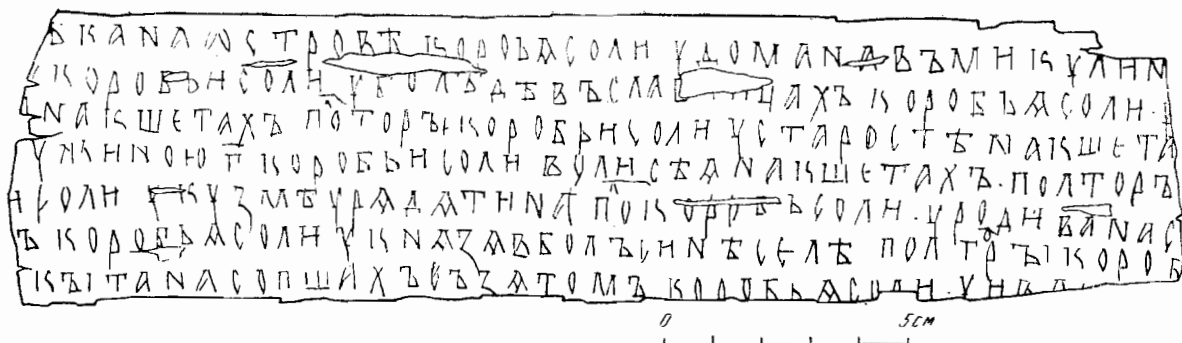 БКАNАѠСТРОВѢ КОРОБЬѦСОЛИ УДОМАNАВЪМНКУЛНN
КОРОБЬНСОЛН УБОЛЪДѢВЪСЛА ЦАХЪ КОРОБЪѦСОЛН·
NАКШЕТАХЪ ПОТОРЪІКОРОБЬНСОЛН УСТАРОСТѢ NАКШЕТА
УЖНNОЮ П КОРОБЬНСОЛН ВУЛНСѢѦNАКШЕТАХЪ·ПОЛТОРЪ
НСОЛН КУЗМѢУРѦДѦТНNА ПОКОРОБЪСОЛН·УРОДНВАNАС
Ъ КОРОБЬѦСОЛН УКNѦЗѦВБОЛЪСНNѢСЕЛѢ ПОЛТРЪІКОРОБ
КЪІТАNАСОПШИХЪСЪЗѦТОМЪ КОРОБЬѦСОЛН·УНВ
0 5см